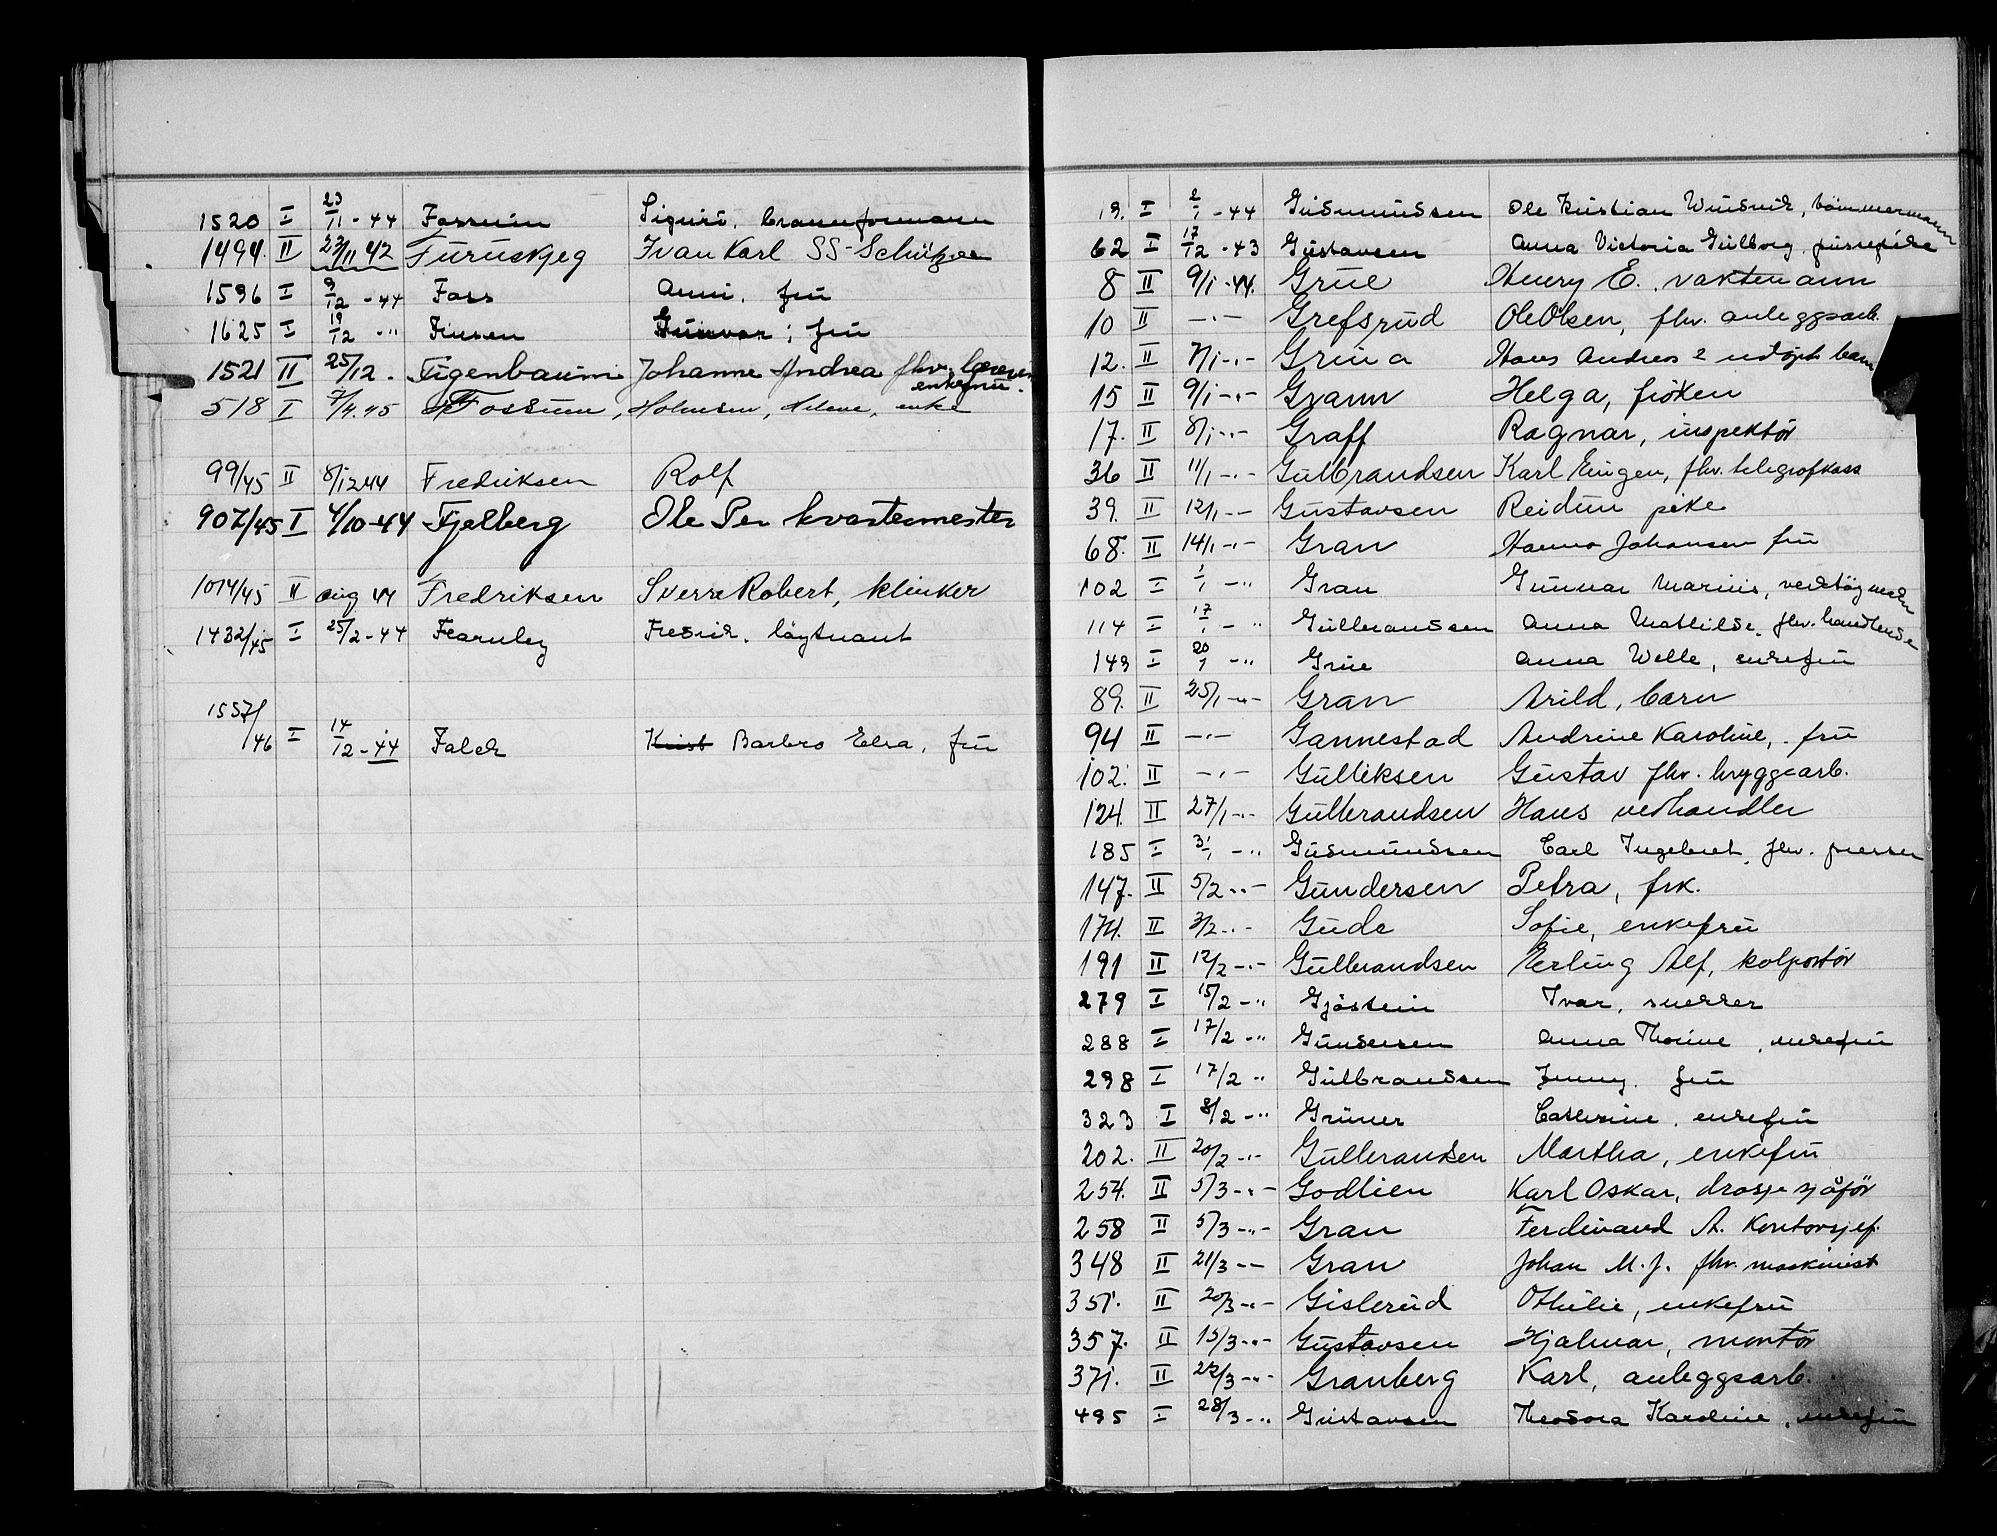 1520 I 23/11-44 Fossum Sigurd, brannformann
1494. II 23/11 42 Furuskjeg Ivan Karl SS-Schütze
1596 I 9/12-44 Foss Anni, fru
1625 I 19/12 -" Finsen Gunvor, fru
1521 II 25/12. Figenbaum Johanne Andrea fhv. lærerin enkefru.
518 I 7/4.45 Fossum, Holmsen, Helene, enke
99/45 II 8/12 44 Fredriksen Rolf
907/45 I 4/10-44 Fjelberg Ole Per kvartermester
1014/45 II aug 44 Fredriksen Sverre Robert, klinker
1432/45 I 25/2-44 Fearnley Fredrik, løytnant
1557/46 I 14/12-44 Falck Barbro Elsa, fru
19. I 2/1-44 Gudmundsen Ole Kristian Wudsvik, tømmermann
62 I 17/12-43 Gustavsen Anna Victoria Gulborg, pusspike
8 II 9/1-44. Grue Henry E., vaktmann
10 II -"- Grefsrud Ole Olsen, fhv. anleggsarb.
12. II 7/1-"- Grina Hans Andres 2 udøpt barn
15 II 9/1-"- Grann Helga, frøken
17. II 8/1-"- Graff Ragnar, inspektør
36 II 11/1-"- Gulbrandsen Karl Eugen, fhv. telegrafkass
39. II 12/1-"- Gustavsen Reidun pike
68. II 14/1-"- Gran Hanna Johansen fru
102 I 1/1 -" Gran Gunnar Marius, verktøymaker
114 I 17/1 -" Gulbrandsen Anna Mathilde, fhv. handlende
149 I 20/1 -" Grue Anna Welle, enkefru
89. II 25/1-"- Gran Arild, barn
94 II -"- Gannestad Andrine Karoline, fru
102. II -"- Gulliksen Gustav fhv. bryggearb.
124. II 27/1-"- Gulbrandsen Hans vedhandler
185 I 31/1 -" Gudmundsen Carl Ingebret, fhv. presser
147. II 5/2-"- Gundersen Petra, frk.
174. II 3/2-"- Gude Sofie, enkefru
191 II 12/2-"- Gulbrandsen Erling Alf, kolportør
279 I 15/2-" Gjøstein Ivar, snekker
288 I 17/2-" Gundersen Anna Thorine, enkefru
298 I 17/2 " Gulbrandsen Jenny, fru
323 I 8/2-" Grüner Cathrine, enkefru
202. II 20/2-"- Gulbrandsen Martha, enkefru
254. II 5/3-"- Godlien Karl Oskar, drosjesjåfør
258 II 5/3-"- Gran Ferdinand A. Kontorsjef.
348 II 21/3-"- Gran Johan M. J. fhv. maskinist
351. II 20/3-"- Gislerud Othilie, enkefru
357. II 15/3-"- Gustavsen Hjalmar, montør
371. II 22/3-"- Granberg Karl, anleggsarb.
495 I 28/3-" Gustavsen Theodora Karoline, enkefru